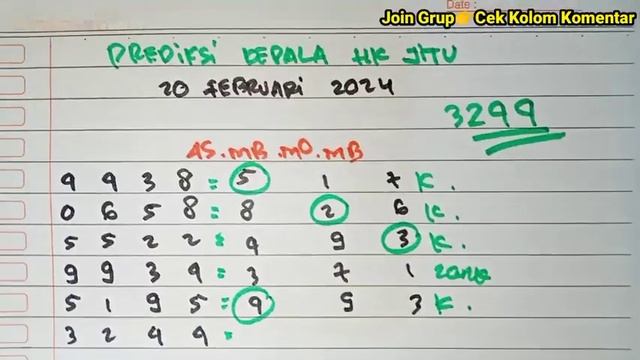 Date :
Join Grup 👉 Cek Kolom Komentar
PREDIKSI KEPALA HK JITU
20 FEBRUARI 2024
3299
AS . MB . MO . MB
9 9 3 8 = 5 1 7 K .
0 6 5 8 = 8 2 6 K .
5 5 2 2 = 9 9 3 K .
9 9 3 9 = 3 7 1
5 1 9 5 = 9 9 3 K .
3 2 9 9 =